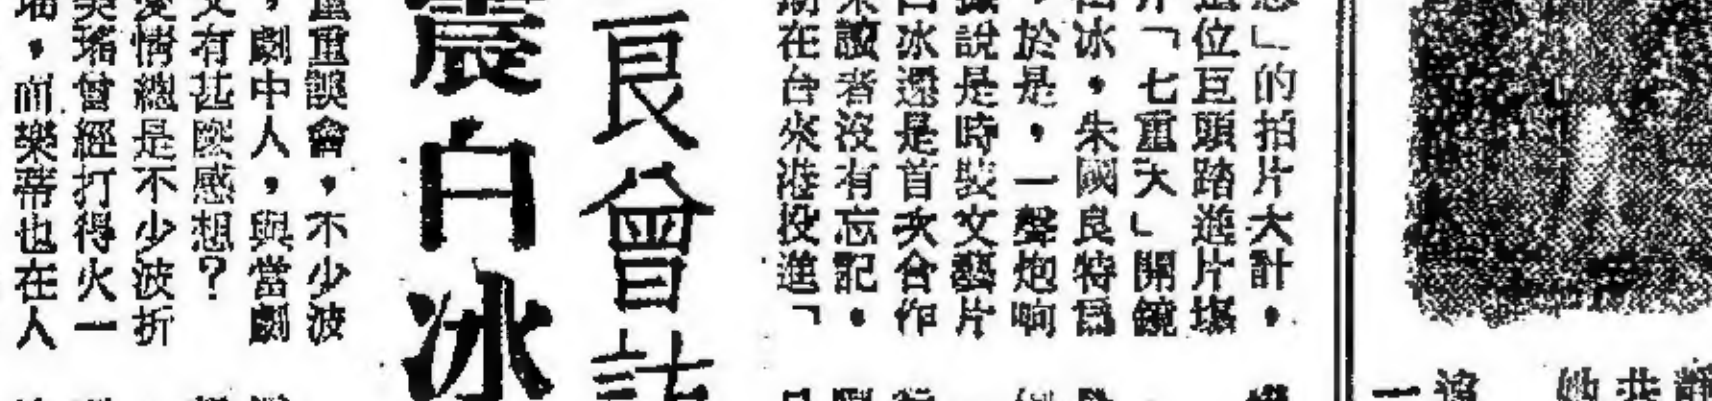 」的拍片大計，
位巨頭踏進片場
「七重天」開鏡
冰，朱國良特為
，於是，一聲炮响
說是時裝文藝片
冰還是首次合作
該者沒有忘記，
在台來港投進「
良曾
震白冰
重重誤會，不少波
，劇中人，與當劇
有甚麼感想？
愛情總是不少波折
瑤曾經打得火一
，而樂蒂也在人